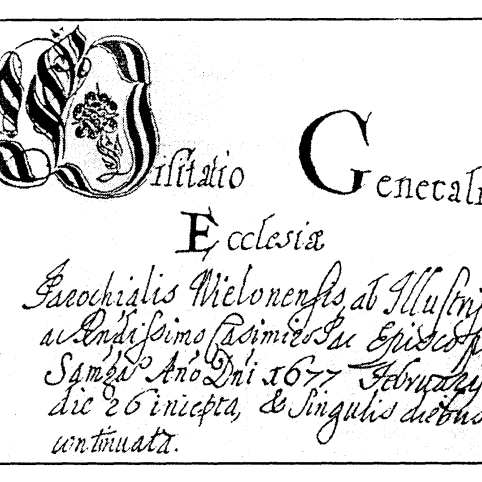 Visitatio Generali
Ecclesiæ
Parochialis Wielonensis, ab Illustris
ac Rndissimo Casimiro Pac Episcop
Samgæ Año Dñi 1677 February
die 26 incepta, & singulis diebus
continuata.